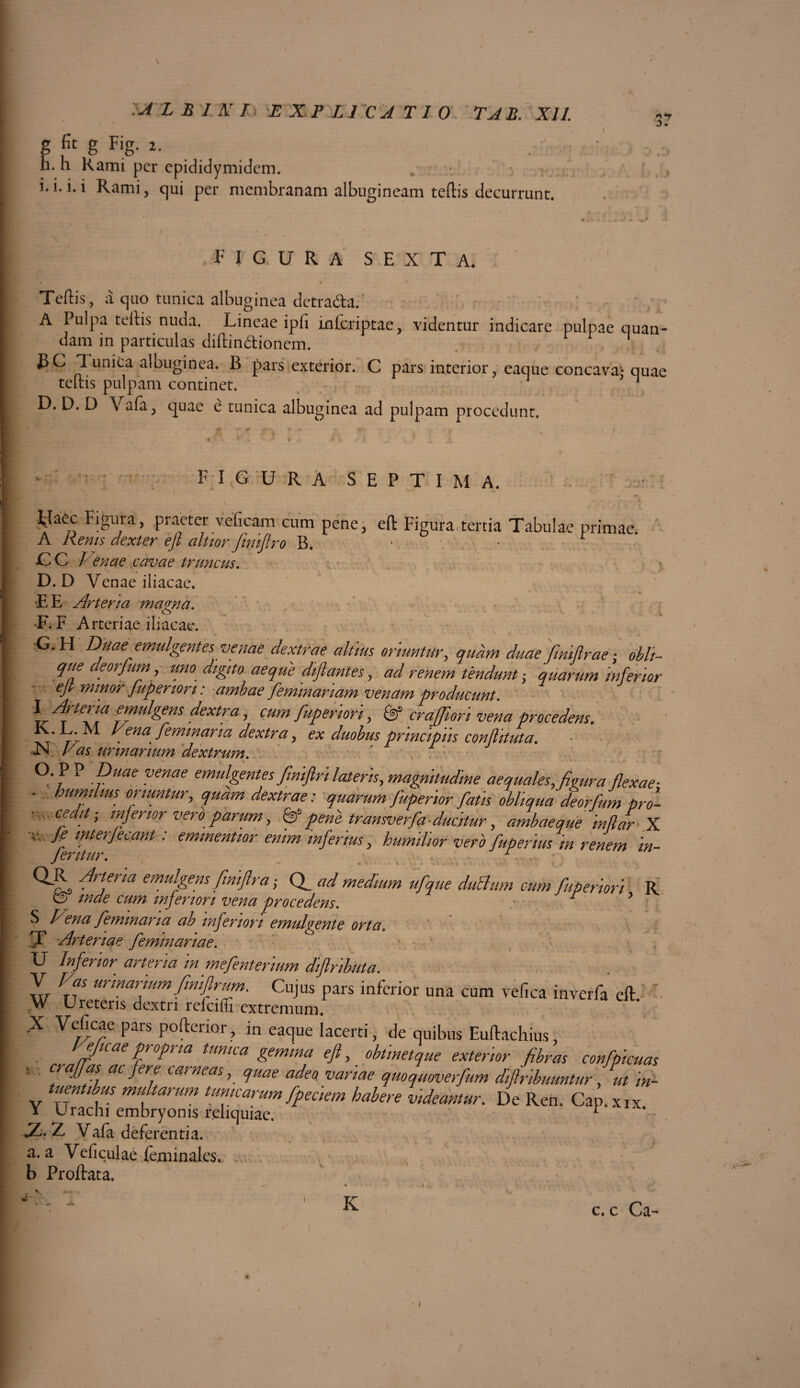 ALBINI EXPLICATIO TAB. XII. 37
g fit g Fig. 2.
h. h Rami per epididymidem.
i. i. i. i Rami, qui per membranam albugineam teſtis decurrunt.
FIGURA SEXTA.
Teſtis, à quo tunica albuginea detracta.
A Pulpa teſtis nuda. Lineae ipſi inſcriptae, videntur indicare pulpae quan-
dam in particulas diſtinctionem.
B C Tunica albuginea. B pars exterior. C pars interior, eaque concava; quae
teſtis pulpam continet.
D. D. D Vaſa, quae è tunica albuginea ad pulpam procedunt.
FIGURA SEPTIMA.
Haec Figura, praeter veſicam cum pene, eſt Figura tertia Tabulae primae.
A Renis dexter eſt altior ſiniſtro B.
C C Venae cavae truncus.
D. D Venae iliacae.
E E Arteria magna.
F. F Arteriae iliacae.
G. H Duae emulgentes venae dextrae altius oriuntur, quàm duae ſiniſtrae; obli-
que deorſum, uno digito aeque diſtantes, ad renem tendunt; quarum inferior
eſt minor ſuperiori: ambae ſeminariam venam producunt.
I Arteria emulgens dextra, cum ſuperiori, & craſſiori vena procedens.
K. L. M Vena ſeminaria dextra, ex duobus principiis conſtituta.
N Vas urinarium dextrum.
O. P P Duae venae emulgentes ſiniſtri lateris, magnitudine aequales, figura flexae;
humilius oriuntur, quàm dextrae: quarum ſuperior ſatis obliqua deorſum pro-
cedit; inferior verò parum, & penè tranſverſa ducitur, ambaeque inſtar X
ſe interſecant: eminentior enim inferius, humilior verò ſuperius in renem in-
feritur.
Q R Arteria emulgens ſiniſtra; Q ad medium uſque ductum cum ſuperiori, R
& inde cum inferiori vena procedens.
S Vena ſeminaria ab inferiori emulgente orta.
T Arteriae ſeminariae.
U Inferior arteria in meſenterium diſtributa.
V Vas urinarium ſiniſtrum. Cujus pars inferior una cum veſica inverſa eſt.
W Ureteris dextri reſciſſi extremum.
X Veſicae pars poſterior, in eaque lacerti, de quibus Euſtachius,
Veſicae propria tunica gemina eſt, obtinetque exterior fibras conſpicuas
craſſas ac fere carneas, quae adeo variae quoquoverſum diſtribuuntur, ut in-
tuentibus multarum tunicarum ſpeciem habere videantur. De Ren. Cap. xix.
Y Urachi embryonis reliquiae.
Z. Z Vaſa deferentia.
a. a Veſiculae ſeminales.
b Proſtata.
K c. c Ca-